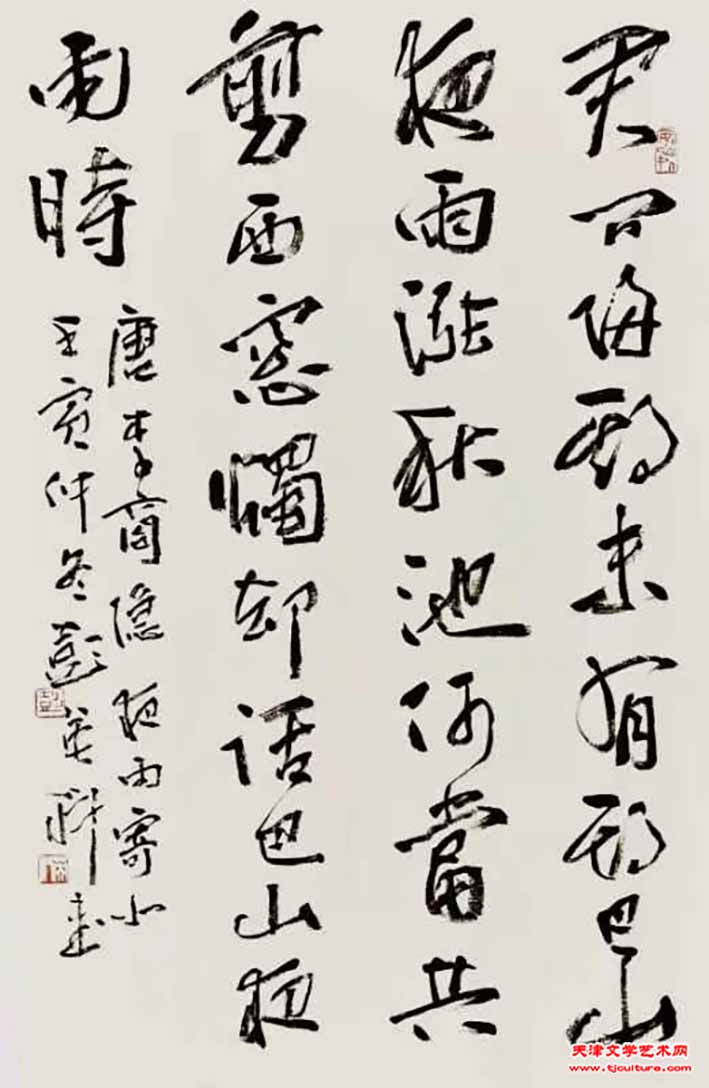 君問歸期未有期巴山
夜雨漲秋池何當共
剪西窗燭却話巴山夜
雨時
唐李商隱夜雨寄北
壬寅仲冬彭英科書
天津文学艺术网
www.tjculture.com